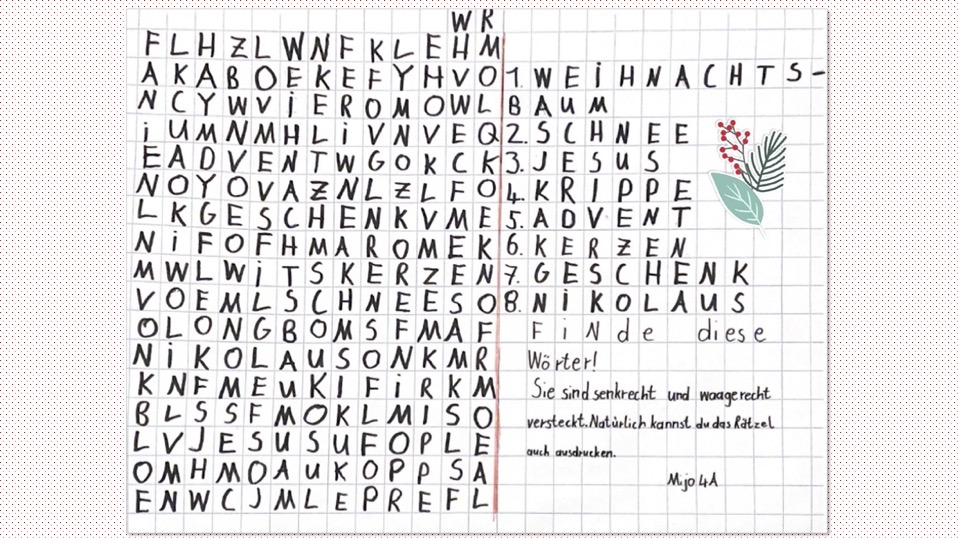 W R
F L H Z L W N F K L E H M
A K A B O E K E F Y H V O
N C Y W V i E R O M O W L
i U M N M H L i V N V E Q
E A D V E N T W G O K C K
N O Y O V A Z N L Z L F O
L K G E S C H E N K V M E
N i F O F H M A R O M E K
M W L W i T S K E R Z E N
V O E M L S C H N E E S O
O L O N G B O M S F M A F
N i K O L A U S O N K M R
K N F M E U K I F i R K M
B L S S F M O K L M I S O
L V J E S U S U F O P L E
O M H M O A U K O P P S A
E N W C J M L E P R E F L
1. W E i H N A C H T S -
B A U M
2. S C H N E E
3. J E S U S
4. K R I P P E
5. A D V E N T
6. K E R Z E N
7. G E S C H E N K
8. N i K O L A U S
F i N d e diese
Wörter!
Sie sind senkrecht und waagerecht
versteckt. Natürlich kannst du das Rätzel
auch ausdrucken.
Mjo 4A